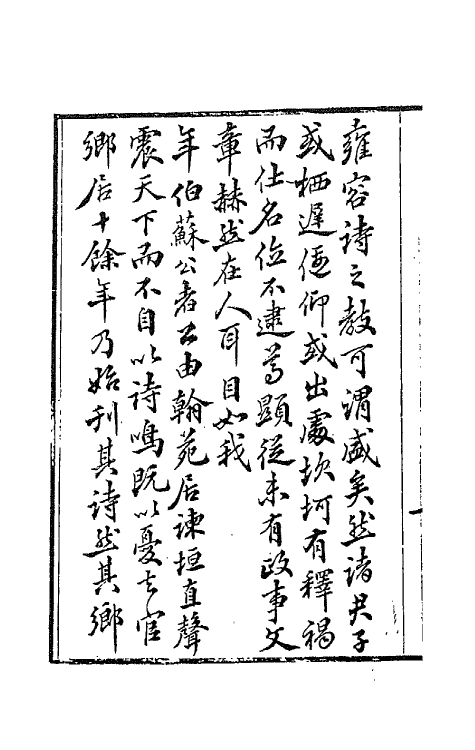 雍容詩之教可謂盛矣然諸君子
或栖遲偃仰或出處坎坷有釋褐
而仕名位不逮尊顯從未有政事文
章赫然在人耳目如我
年伯蘇公者公由翰苑居諫垣直聲
震天下而不自以詩鳴既以憂去官
鄉居十餘年乃始刊其詩然其鄉